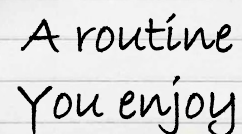 A routine
You enjoy